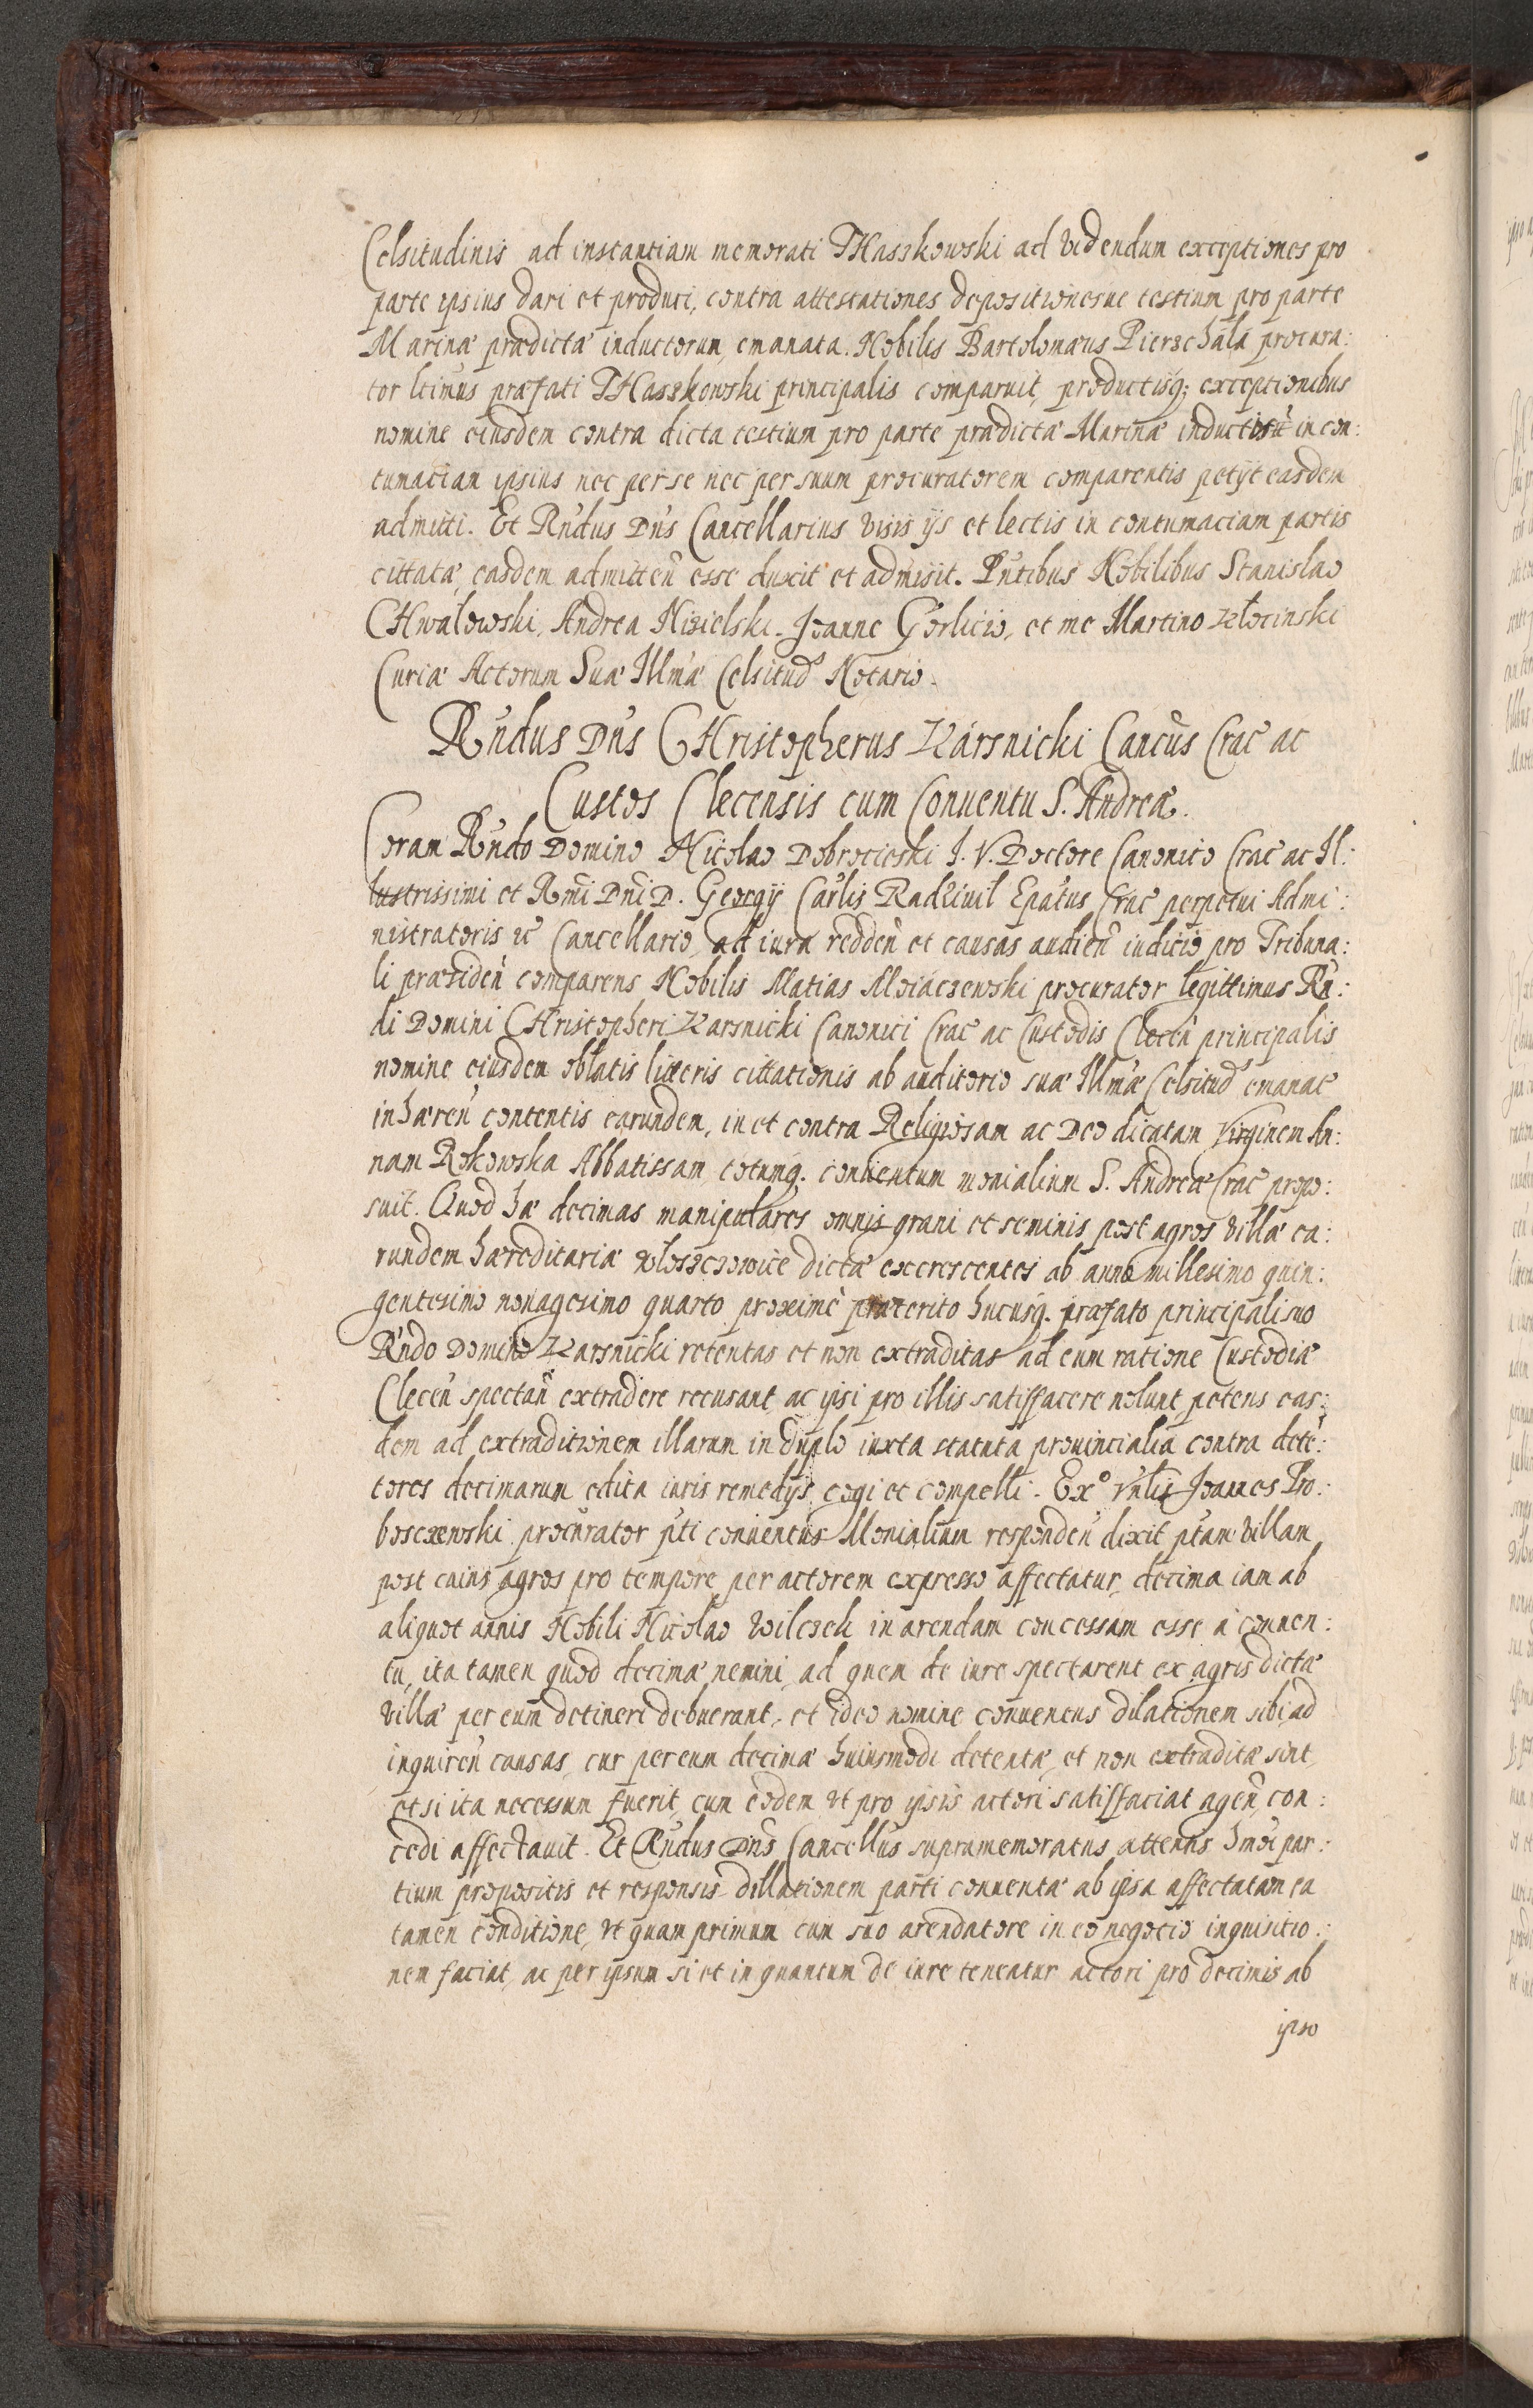 Celsitudinis ad instantiam memorati THaszkowski ad videndum exceptiones pro
parte ipsius dari et produci, contra attestationes depositionesue testium pro parte
Marinæ prædictæ inductorum, emanata. Nobilis Bartolomæus Pierzchala procura:
tor ltimus præfati THaszkowski principalis comparuit, productisq; exceptionibus
nomine eiusdem contra dicta testium pro parte prædictæ Marinæ inductorũ in con:
tumaciam ipsius nec per se nec per suum procuratorem comparentis petijt easdem
admitti. Et Rńdus Dńs Cancellarius visis ijs et lectis in contumaciam partis
cittatæ, easdem admitteń esse duxit et admisit. Pńtibus Nobilibus Stanislao
CHwalowski, Andrea Nizielski, Joanne Gorlicio, et me Martino Złocinski
Curiæ Actorum Suæ Illmæ Celsitud Notario.
Rńdus Dńs CHristopherus Kárśnicki Cancus Crac ac
Custos Clecensis cum Conuentu S. Andreæ.
Coram Rńdo Domino Nicolao Dobrocieski J. V. Doctore Canonico Crac ac Il:
lustrissimi et Rmi Dni D. Georgij Carlis Radziuil Epatus Crac perpetui Admi:
nistratoris &c Cancellario, ad iura reddeń et causas audień iudicio pro Tribuna:
li præsideń comparens Nobilis Matias Moiáczewski procurator legittimus Rń:
di Domini CHristopheri Karsnicki Canonici Crac ac Custodis Clecen principalis
nomine eiusdem oblatis litteris cittationis ab auditorio suæ Illmæ Celsitud emanat
inhæreń contentis earundem, in et contra Religiosam ac Deo dicatam Virginem An:
nam Rokowska Abbatissam, totumq. conuentum monialium S. Andreæ Crac propo:
suit. Quod hæ decimas manipulares omnis grani et seminis post agros villæ ea:
rundem hæreditariæ dictæ excrescentes ab anno millesimo quin:
gentesimo nonagesimo quarto proximè præterito hucusq. præfato principali suo
Rńdo Domino Karsnicki retentas et non extraditas ad eum ratione Custodiæ
Clecen spectań extradere recusant, ac ipsi pro illis satisfacere nolunt petens eas:
dem ad extraditionem illarum in duplo iuxta statuta prouincialia contra dete:
tores decimarum edita iuris remedijs cogi et compelli. Exº Joannes Pro:
boszewski procurator pti conuentus Monialium respondeń dixit ptam villam
post cuius agros pro tempore per actorem expresso affectatur, decima iam ab
aliquot annis Nobili Nicolao Wilczek in arendam concessam esse a conuen:
tu, ita tamen quod decimæ nemini, ad quem de iure spectarent ex agris dictæ
villæ per eum detineri debuerant, et ideo nomine conuentus dilationem sibi ad
inquireń causas, cur per eum decimæ huiusmodi detentæ, et non extraditæ sint,
et si ita necessum fuerit, cum eodem vt pro ipsis actori satisfaciat ageń, con:
cedi affectauit. Et Rńdus Dńs Cancellus supramemoratus attentis hmoi par:
tium propositis et responsis dillationem parti conuentæ ab ipsa affectatam ea
tamen conditione, vt quam primum cum suo arendatore in eo negotio inquisitio:
nem faciat, ac per ipsum si et in quantum de iure teneatur actori pro decimis ab
ipso